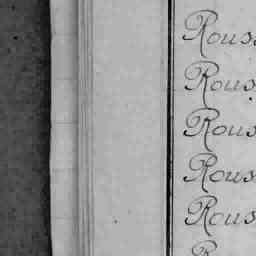 Rouss
Rous
Rous
Rous
Rous